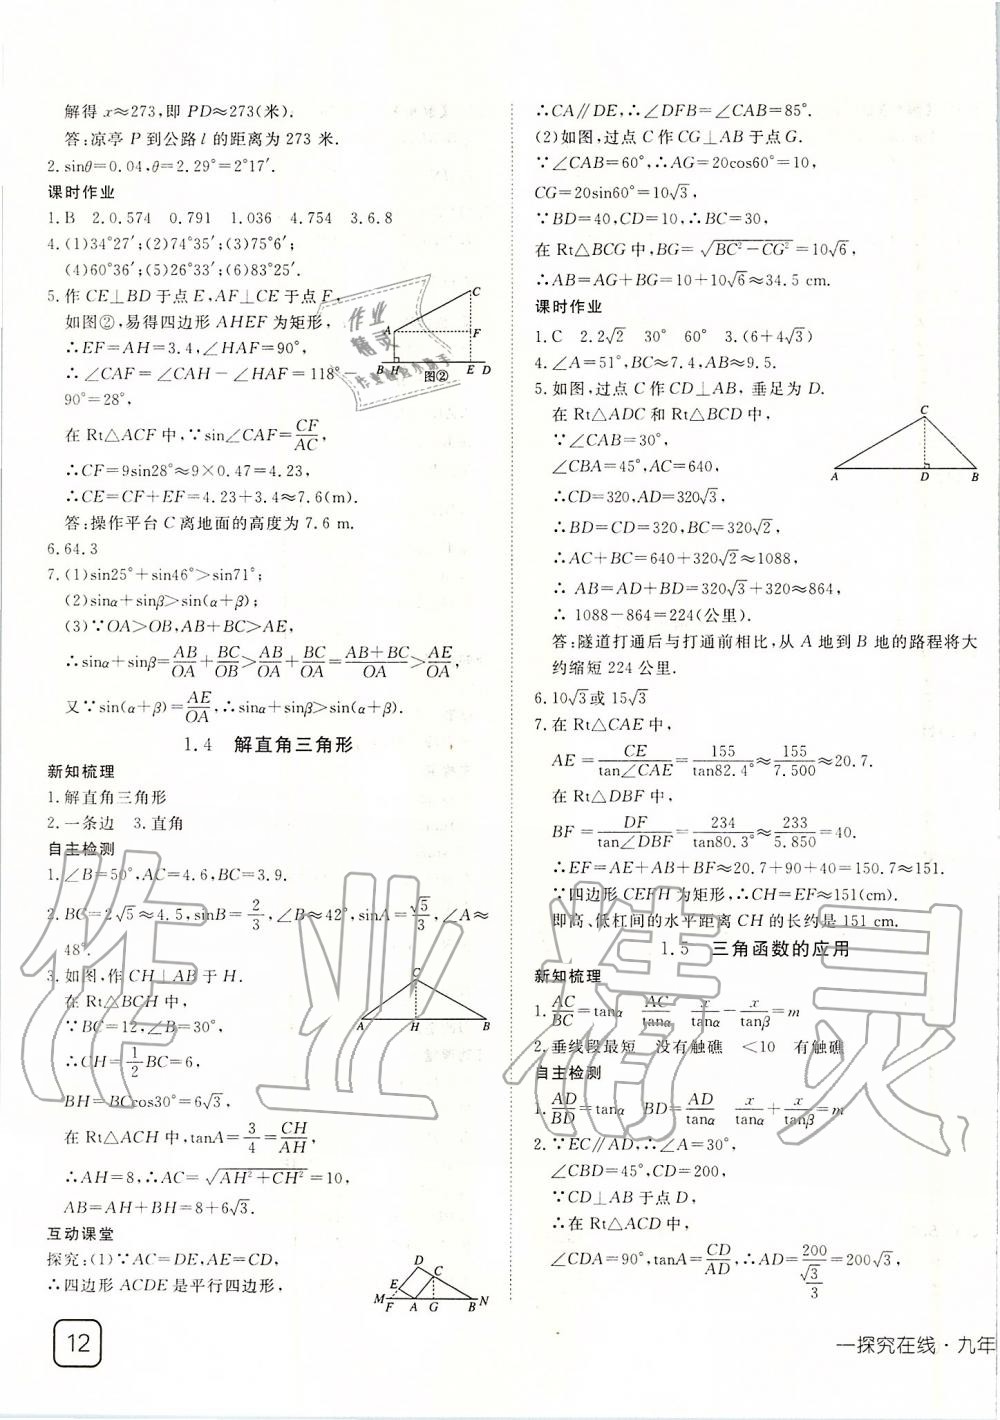 解得 x≈273,即 PD≈273(米).
答:凉亭 P 到公路 l 的距离为 273 米.
2.sinθ=0.04,θ=2.29°=2°17′.
课时作业
1.B 2.0.574 0.791 1.036 4.754 3.6.8
4.(1)34°27′;(2)74°35′;(3)75°6′;
(4)60°36′;(5)26°33′;(6)83°25′.
5.作 CE⊥BD 于点 E,AF⊥CE 于点 F,
如图②,易得四边形 AHEF 为矩形,
∴EF=AH=3.4,∠HAF=90°,
∴∠CAF=∠CAH-∠HAF=118°-
90°=28°,
C
A
F
B H E D
图②
在 Rt△ACF 中,∵sin∠CAF=CF/AC,
∴CF=9sin28°≈9×0.47=4.23,
∴CE=CF+EF=4.23+3.4≈7.6(m).
答:操作平台 C 离地面的高度为 7.6 m.
6.64.3
7.(1)sin25°+sin46°>sin71°;
(2)sinα+sinβ>sin(α+β);
(3)∵OA>OB,AB+BC>AE,
∴sinα+sinβ=AB/OA+BC/OB>AB/OA+BC/OA=AB+BC/OA>AE/OA,
又∵sin(α+β)=AE/OA,∴sinα+sinβ>sin(α+β).
1.4 解直角三角形
新知梳理
1.解直角三角形
2.一条边 3.直角
自主检测
1.∠B=50°,AC=4.6,BC=3.9.
2.BC=2√5≈4.5,sinB=2/3,∠B≈42°,sinA=√5/3,∠A≈
48°.
3.如图,作 CH⊥AB 于 H.
在 Rt△BCH 中,
∵BC=12,∠B=30°,
∴CH=1/2BC=6,
BH=BCcos30°=6√3,
C
A H B
在 Rt△ACH 中,tanA=3/4=CH/AH,
∴AH=8,∴AC=√AH²+CH²=10,
AB=AH+BH=8+6√3.
互动课堂
探究:(1)∵AC=DE,AE=CD,
∴四边形 ACDE 是平行四边形,
D
C
E
M F A G B N
12
∴CA∥DE,∴∠DFB=∠CAB=85°.
(2)如图,过点 C 作 CG⊥AB 于点 G.
∵∠CAB=60°,∴AG=20cos60°=10,
CG=20sin60°=10√3,
∵BD=40,CD=10,∴BC=30,
在 Rt△BCG 中,BG=√BC²-CG²=10√6,
∴AB=AG+BG=10+10√6≈34.5 cm.
课时作业
1.C 2.2√2 30° 60° 3.(6+4√3)
4.∠A=51°,BC≈7.4,AB≈9.5.
5.如图,过点 C 作 CD⊥AB, 垂足为 D.
在 Rt△ADC 和 Rt△BCD 中,
∵∠CAB=30°,
∠CBA=45°,AC=640,
∴CD=320,AD=320√3,
∴BD=CD=320,BC=320√2,
C
A D B
∴AC+BC=640+320√2≈1088,
∴ AB=AD+BD=320√3+320≈864,
∴ 1088-864=224(公里).
答:隧道打通后与打通前相比,从 A 地到 B 地的路程将大
约缩短 224 公里.
6.10√3或 15√3
7.在 Rt△CAE 中,
AE=CE/tan∠CAE=155/tan82.4°≈155/7.500≈20.7.
在 Rt△DBF 中,
BF=DF/tan∠DBF=234/tan80.3°≈233/5.850=40.
∴EF=AE+AB+BF≈20.7+90+40=150.7≈151.
∵四边形 CEFH 为矩形,∴CH=EF≈151(cm).
即高、低杠间的水平距离 CH 的长约是 151 cm.
1.5 三角函数的应用
新知梳理
1.AC/BC=tanα AC/tanα x/tanα-x/tanβ=m
2.垂线段最短 没有触礁 <10 有触礁
自主检测
1.AD/BD=tanα BD=AD/tanα x/tanα+x/tanβ=m
2.∵EC∥AD,∴∠A=30°,
∠CBD=45°,CD=200,
∵CD⊥AB 于点 D,
∴在 Rt△ACD 中,
∠CDA=90°,tanA=CD/AD,∴AD=200/(√3/3)=200√3,
一探究在线·九年
作业精灵
作业
精灵